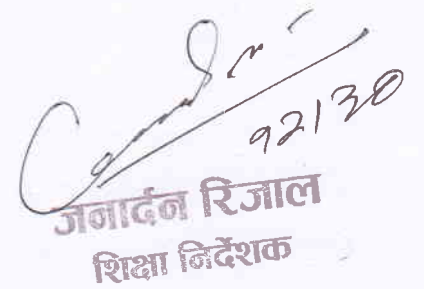 १२।३०
जनार्दन रिजाल
शिक्षा निर्देशक